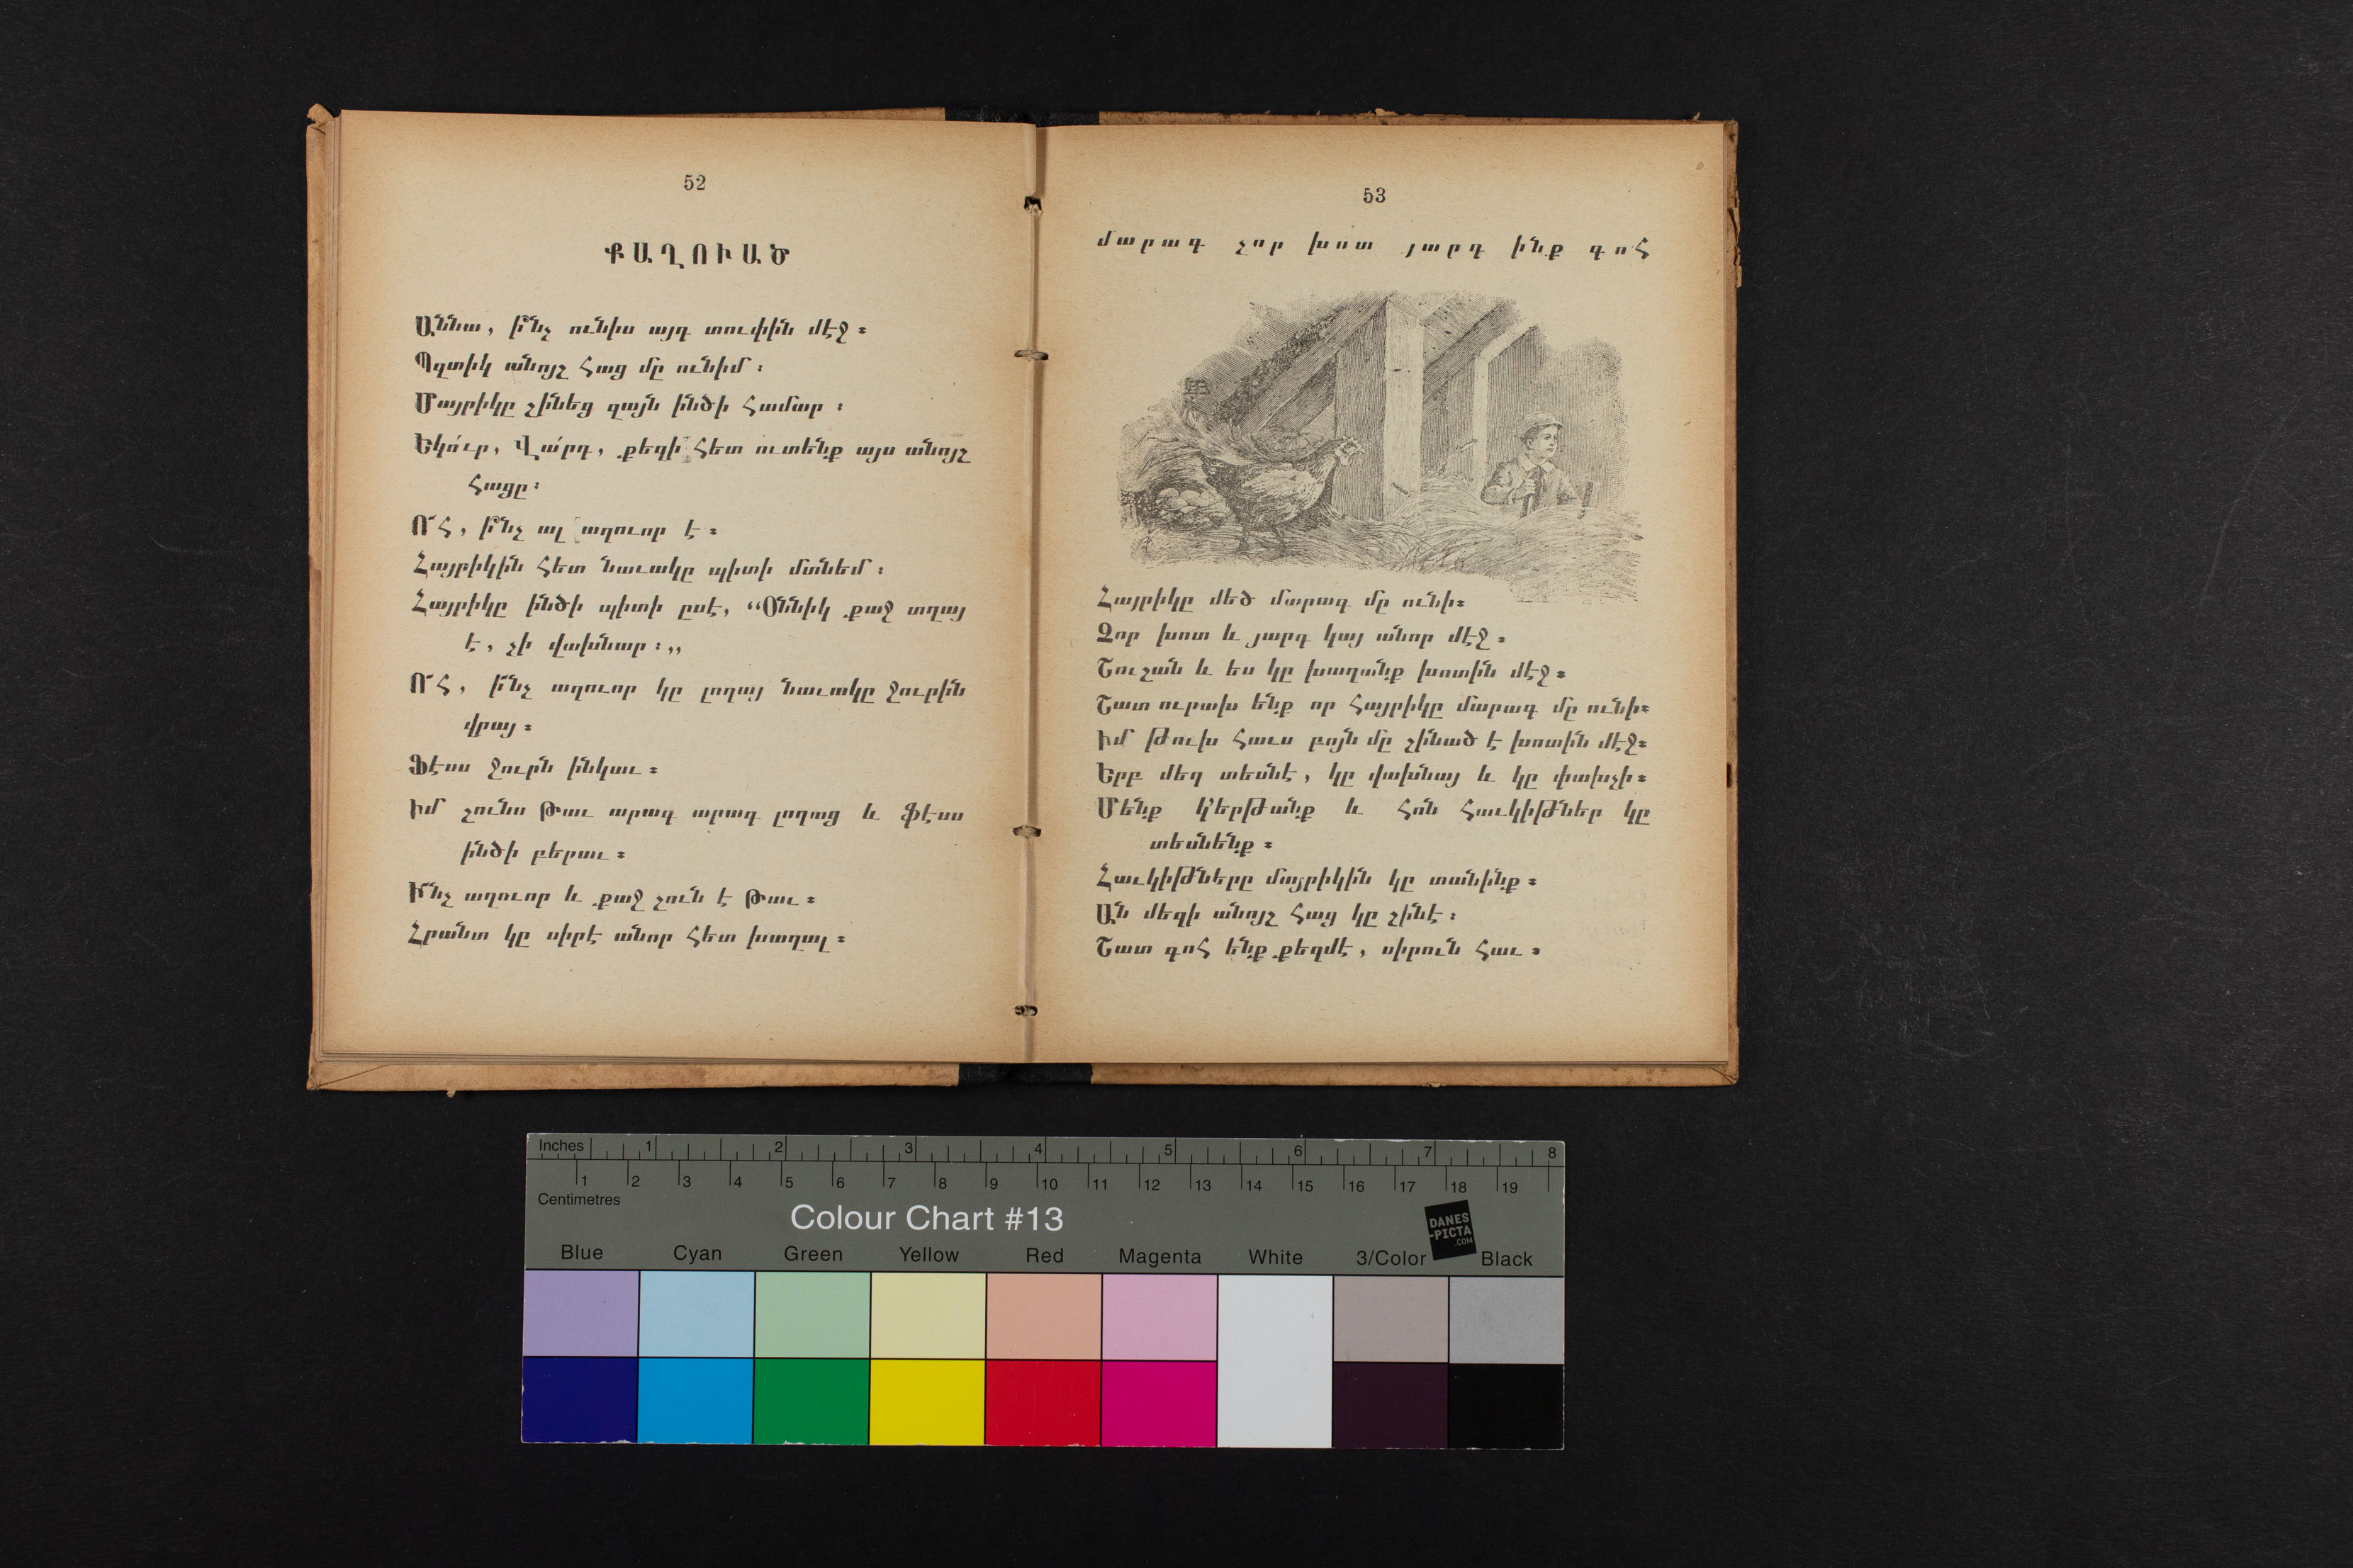 52
ՔԱՂՈՒԱԾ
Աննա, ի՞նչ ունիս այդ տուփին մէջ։
Պզտիկ անոյշ հաց մը ունիմ։
Մայրիկը շինեց զայն ինծի համար։
Եկո՛ւր, Վա՛րդ, քեզի հետ ուտենք այս անոյշ
հացը։
Ո՜հ, ի՞նչ ալ աղուոր է։
Հայրիկին հետ նաւակը պիտի մտնեմ։
Հայրիկը ինծի պիտի ըսէ, “Օննիկ քաջ տղայ
է, չի վախնար։„
Ո՜հ, ի՜նչ աղուոր կը լողայ նաւակը ջուրին
վրայ։
Ֆէսս ջուրն ինկաւ։
Իմ շունս Թաւ արագ արագ լողաց և ֆէսս
ինծի բերաւ։
Ի՜նչ աղուոր և քաջ շուն է Թաւ։
Հրանտ կը սիրէ անոր հետ խաղալ։
53
մարագ չոր խոտ յարդ ինք գոհ
Հայրիկը մեծ մարագ մը ունի։
Չոր խոտ և յարդ կայ անոր մէջ։
Շուշան և ես կը խաղանք խոտին մէջ։
Շատ ուրախ ենք որ հայրիկը մարագ մը ունի։
Իմ Թուխ հաւս բոյն մը շինած է խոտին մէջ։
Երբ մեզ տեսնէ, կը վախնայ և կը փախչի։
Մենք կ՚երթանք և հոն հաւկիթներ կը
տեսնենք։
Հաւկիթները մայրիկին կը տանինք։
Ան մեզի անոյշ հաց կը շինէ։
Շատ գոհ ենք քեզմէ, սիրուն հաւ։
Inches 1 2 3 4 5 6 7 8
1 2 3 4 5 6 7 8 9 10 11 12 13 14 15 16 17 18 19
Centimetres
Colour Chart #13
DANES
-PICTA
.COM
Blue Cyan Green Yellow Red Magenta White 3/Color Black